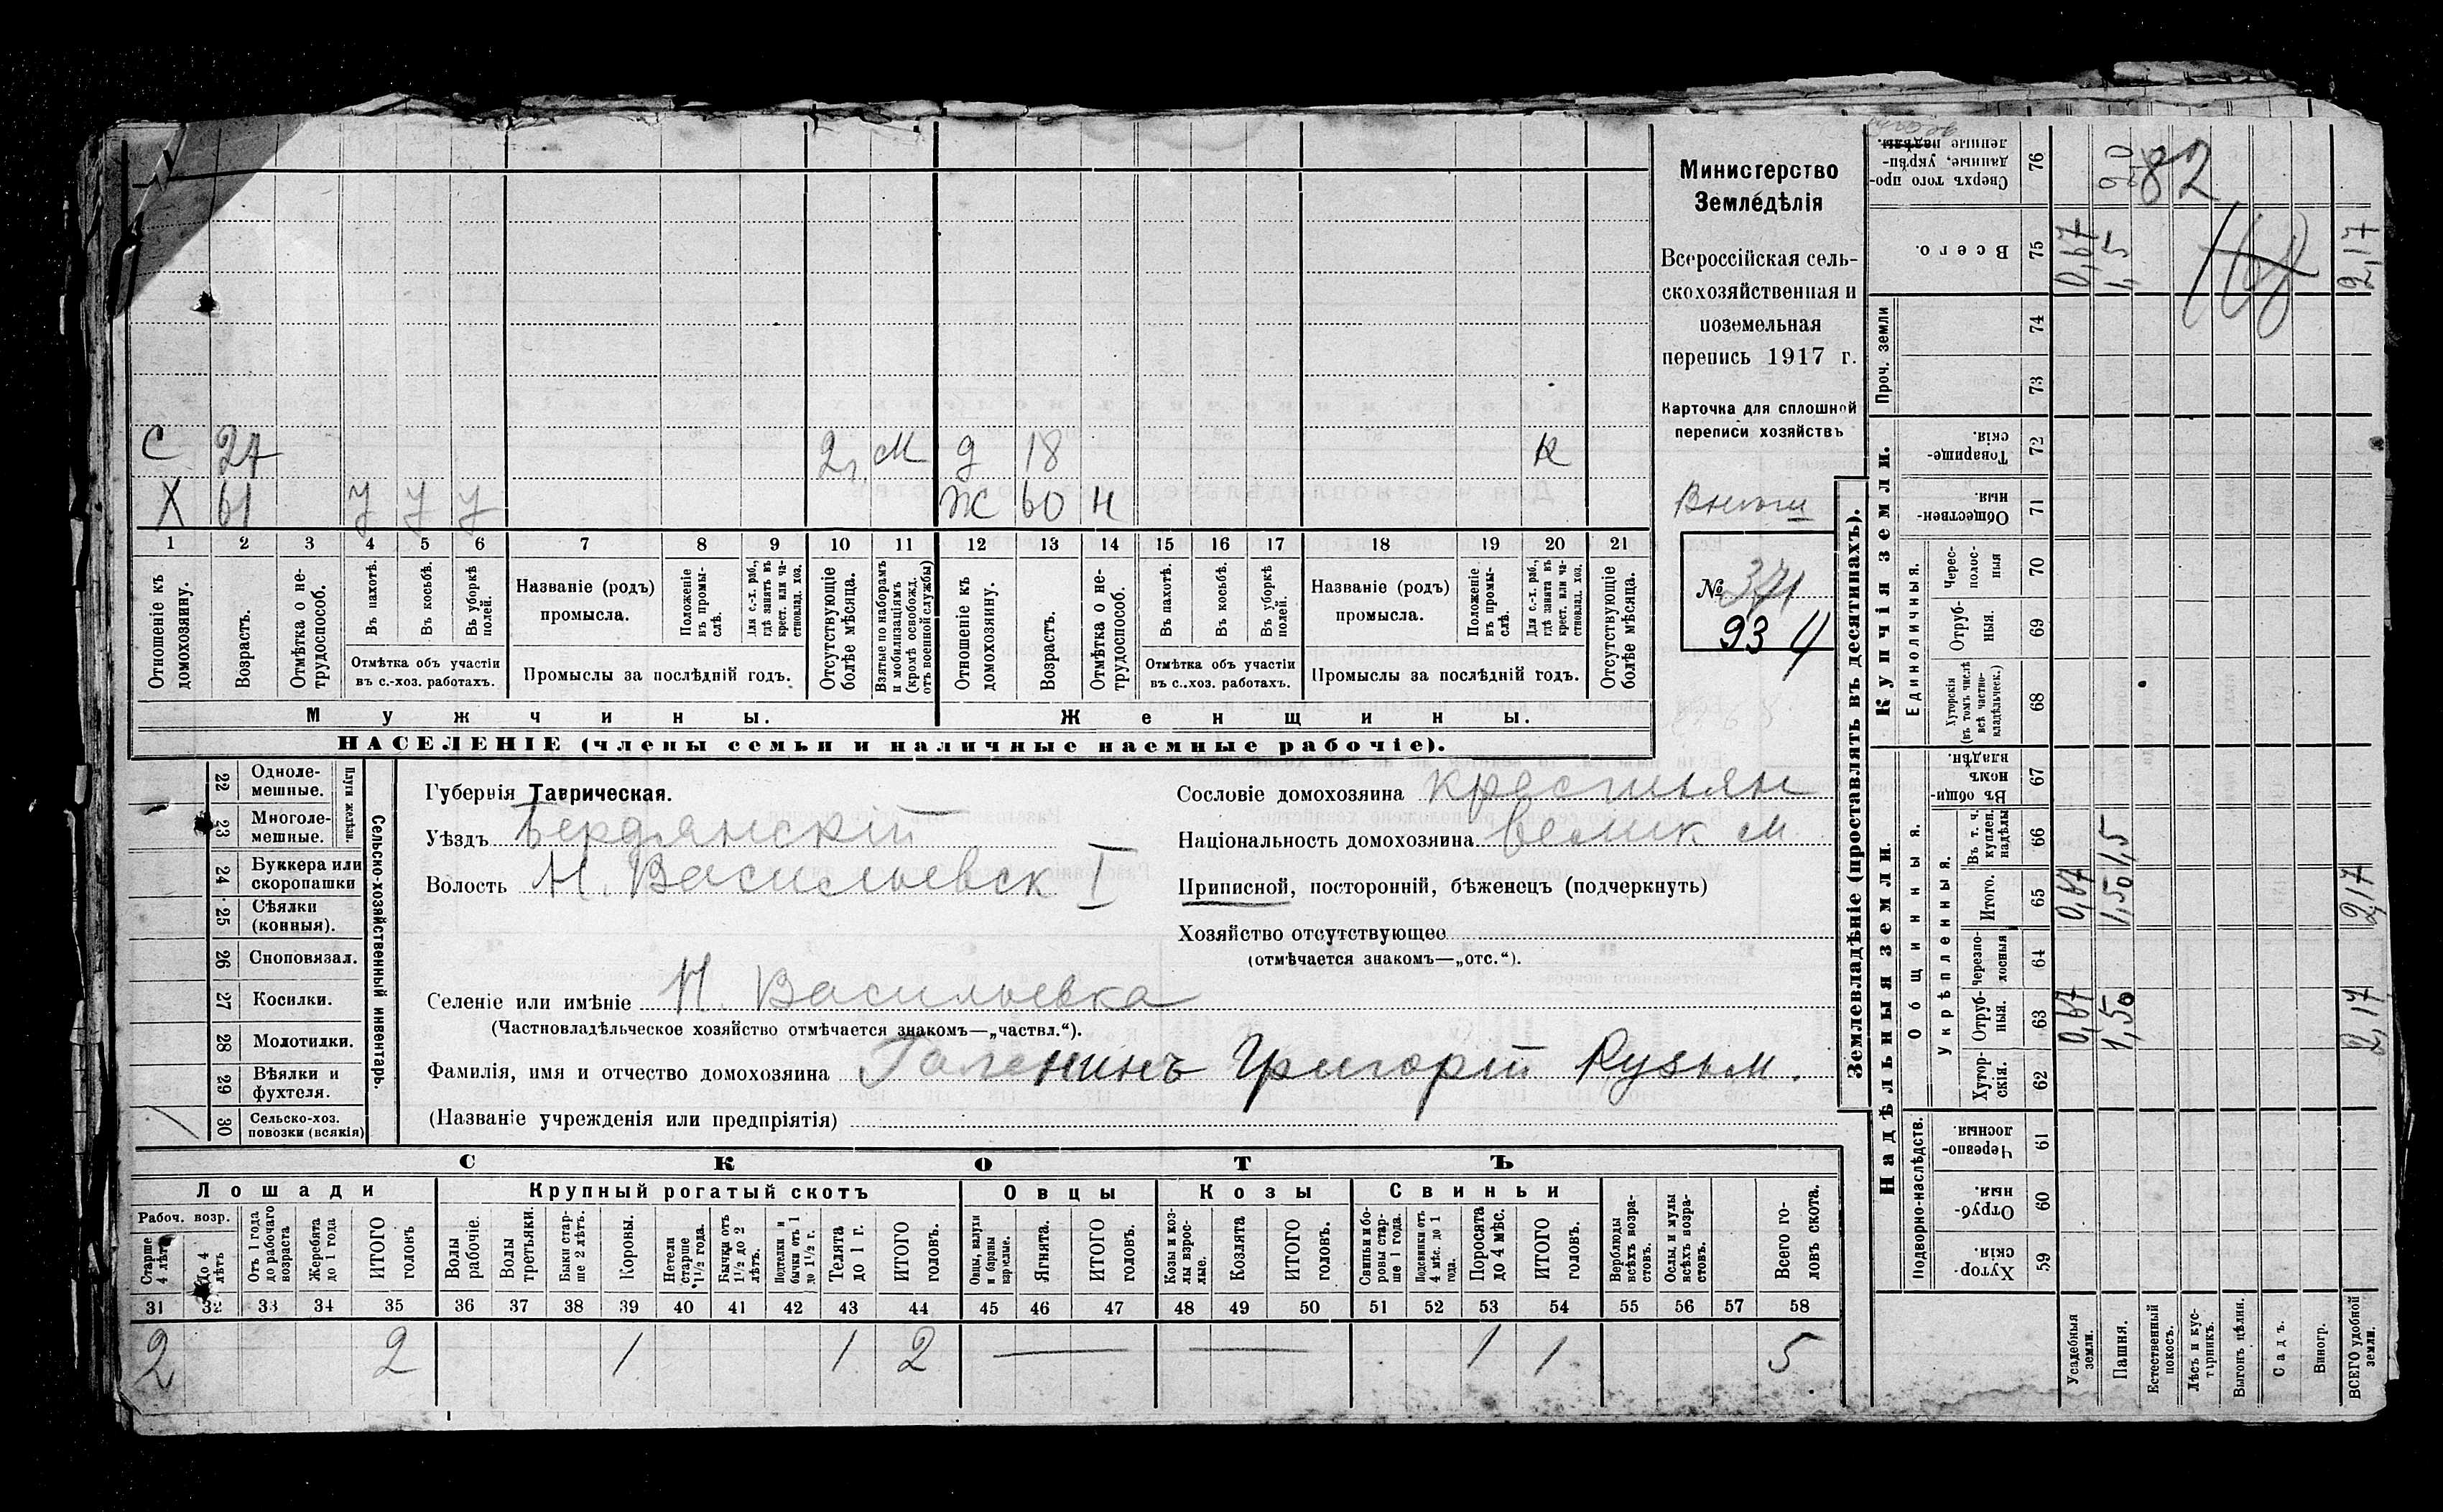 С 27 2 г. М д 18 к
Х 61 у у у Ж 60 н
1 2 3 4 5 6 7 8 9 10 11 12 13 14 15 16 17 18 19 20 21
Отношеніе къ домохозяину.
Возрастъ.
Отмѣтка о нетрудоспособ.
Въ пахотѣ.
Въ косьбѣ.
Въ уборкѣ полей.
Отмѣтка объ участіи
въ с.-хоз. работахъ.
Названіе (родъ)
промысла.
Положеніе въ промыслѣ.
Для с.-х. раб., гдѣ занятъ въ крест. или частновлад. хоз.
Промыслы за послѣдній годъ.
Отсутствующіе болѣе мѣсяца.
Взятые по наборамъ и мобилизаціямъ (кромѣ освобожд. отъ военной службы)
Отношеніе къ домохозяину.
Возрастъ.
Отмѣтка о нетрудоспособ.
Въ пахотѣ.
Въ косьбѣ.
Въ уборкѣ полей.
Отмѣтка объ участіи
въ с..хоз. работахъ.
Названіе (родъ)
промысла.
Положеніе въ промыслѣ.
Для с.-х. раб., гдѣ занята въ крест. или частновлад. хоз.
Промыслы за послѣдній годъ.
Отсутствующіе болѣе мѣсяца.
Мужчины.
Женщины.
НАСЕЛЕНІЕ (члены семьи и наличные наемные рабочіе).
Министерство
Земледѣлія
Всероссійская сель-
скохозяйственная и
поземельная
перепись 1917 г.
Карточка для сплошной
переписи хозяйствъ
№ 371
93 4
22 Однолемешные.
23 Многолемешные.
Плуги желѣзн.
24 Буккера или скоропашки
25 Сѣялки (конныя).
26 Сноповязал.
27 Косилки.
28 Молотилки.
29 Вѣялки и фухтеля.
30 Сельско-хоз. повозки (всякія)
Сельско-хозяйственный инвентарь.
Губернія Таврическая.
Уѣздъ Бердянскій
Волость Н. Васильевск I
Селеніе или имѣніе Н. Васильевка
(Частновладѣльческое хозяйство отмѣчается знакомъ—„частвл.“).
Фамилія, имя и отчество домохозяина Галенинъ Григорій Кузьм.
(Названіе учрежденія или предпріятія)
Сословіе домохозяина крестьян
Національность домохозяина велик м
Приписной, посторонній, бѣженецъ (подчеркнуть)
Хозяйство отсутствующее
(отмѣчается знакомъ—„отс.“).
СКОТЪ
Лошади
Крупный рогатый скотъ
Овцы
Козы
Свиньи
Рабоч. возр.
Старше 4 лѣтъ
До 4 лѣтъ
Отъ 1 года до рабочаго возраста
Жеребята до 1 года
ИТОГО головъ
Волы рабочіе.
Волы третьяки.
Быки старше 2 лѣтъ.
Коровы.
Нетели старше 1½ года.
Бычки отъ 1½ до 2 лѣтъ.
Подтелки и бычки отъ 1 до 1½ г.
Телята до 1 г.
ИТОГО головъ.
Овцы, валухи и бараны взрослые.
Ягнята.
ИТОГО головъ.
Козы и козлы взрослые.
Козлята
ИТОГО головъ.
Свиньи и боровы старше 1 года.
Подсвинки отъ 4 мѣс. до 1 года.
Поросята до 4 мѣс.
ИТОГО головъ.
Верблюды всѣхъ возрастовъ.
Ослы, и мулы всѣхъ возрастовъ.
Всего головъ скота.
31 32 33 34 35 36 37 38 39 40 41 42 43 44 45 46 47 48 49 50 51 52 53 54 55 56 57 58
2 2 1 1 2 — — 1 1 5
Землевладѣніе (проставлять въ десятинахъ).
Купчія земли.
Надѣльныя земли.
Сверхъ того проданные, укрѣпленные надѣлы. 76
Всего. 75
Проч. земли
74
73
Товарищескія. 72
Общественныя. 71
Единоличныя.
Чересполосныя 70
Отрубныя. 69
Хуторскія (въ томъ числѣ всѣ частновладѣльческ.) 68
Общинныя.
Въ общинномъ владѣн. 67
Укрѣпленныя.
Въ т. ч. куплен. надѣлы 66
Итого. 65
Черезполосныя 64
Отрубныя. 63
Хуторскія. 62
Подворно-наслѣдств.
Черезполосныя. 61
Отрубныя. 60
Хуторскія. 59
Усадебныя земли. 0,67 0,67 0,67
Пашня. 1,50 1,50 1,5 1,5
Естественный покосъ.
Лѣсъ и кустарникъ.
Выгонъ цѣлин.
Садъ.
Виногр.
ВСЕГО удобной земли. 2,17 2,17 2,17
82